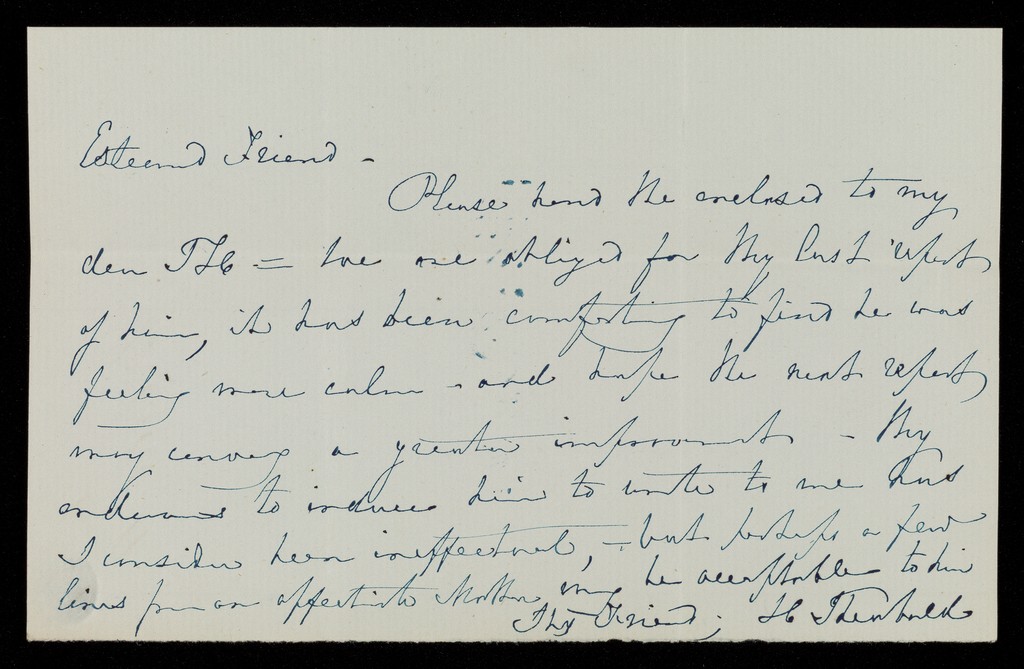 Esteemed Friend -
Please hand the enclosed to my
dear T H = we are obliged for thy last report
of him, it has been comforting to find he was
feeling more calm - and hope the next report
may convey a greater improvement - Thy
endeavours to induce him to write to me has
I consider been ineffectual, - but perhaps a few
lines from an affectionate Mother may be acceptable to him
Thy Friend, H Theobald